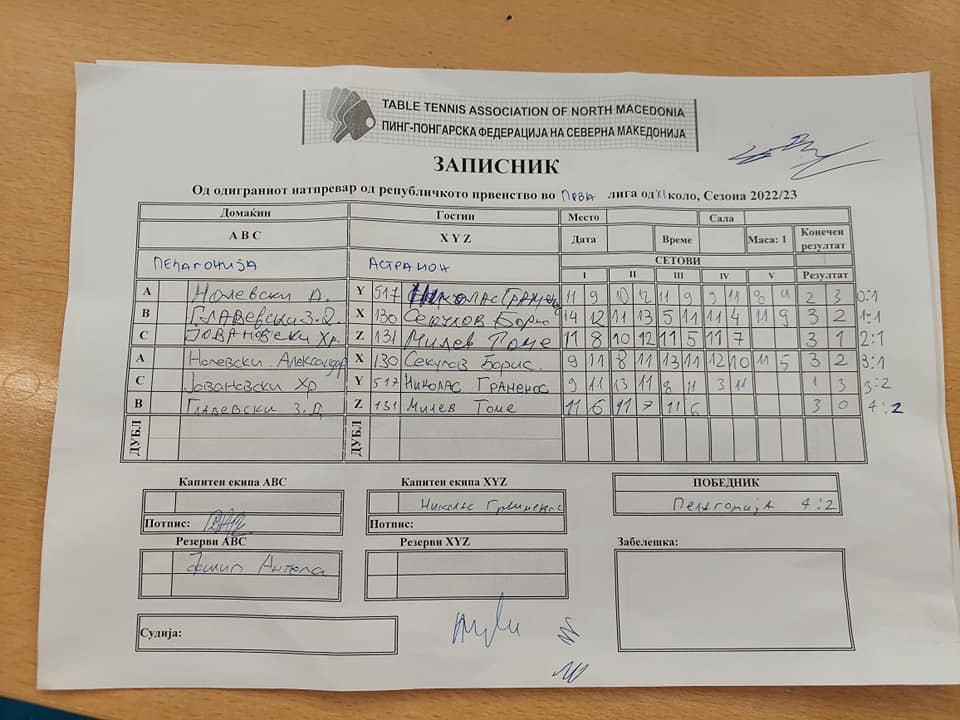 TABLE TENNIS ASSOCIATION OF NORTH MACEDONIA
ПИНГ-ПОНГАРСКА ФЕДЕРАЦИЈА НА СЕВЕРНА МАКЕДОНИЈА
ЗАПИСНИК
Од одиграниот натпревар од републичкото првенство во ПРВА лига од XI коло, Сезона 2022/23
Домаќин Гостин Место Сала
A B C X Y Z Дата Време Маса: 1 Конечен резултат
ПЕЛАГОНИЈА АСТРАИОН СЕТОВИ
I II III IV V Резултат
A Нолевски А. Y 517 НИКОЛАС ГРАМЕНОС 11 9 10 12 11 9 9 11 8 11 2 3 0:1
B ГЛАВЕВСКИ З.Д. X 130 Секулов Борис 14 12 11 13 5 11 11 4 11 9 3 2 1:1
C ЈОВАНОВСКИ Хр. Z 131 Милев Томе 11 8 10 12 11 5 11 7 3 1 2:1
A Нолевски Александар X 130 Секулов Борис. 9 11 8 11 13 11 12 10 11 5 3 2 3:1
C Јовановски Хр Y 517 НИКОЛАС ГРАМЕНОС 9 11 13 11 8 11 3 11 1 3 3:2
B Главевски З.Д Z 131 Милев Томе 11 6 11 7 11 6 3 0 4:2
ДУБЛ ДУБЛ
Капитен екипа ABC Капитен екипа XYZ ПОБЕДНИК
Николас Граменос Пелагонија 4:2
Потпис: Потпис:
Резерви ABC Резерви XYZ Забелешка:
Ангела
Судија: